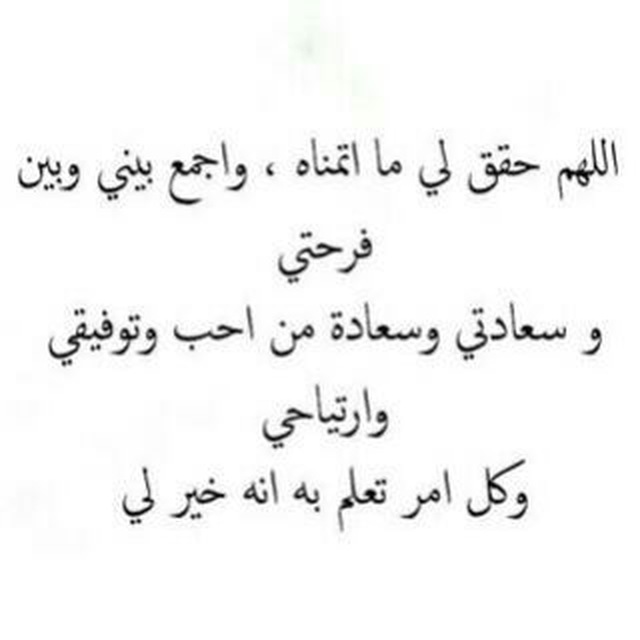 اللهم حقق لي ما اتمناه ، واجمع بيني وبين
فرحتي
و سعادتي وسعادة من احب وتوفيقي
وارتياحي
وكل امر تعلم به انه خير لي